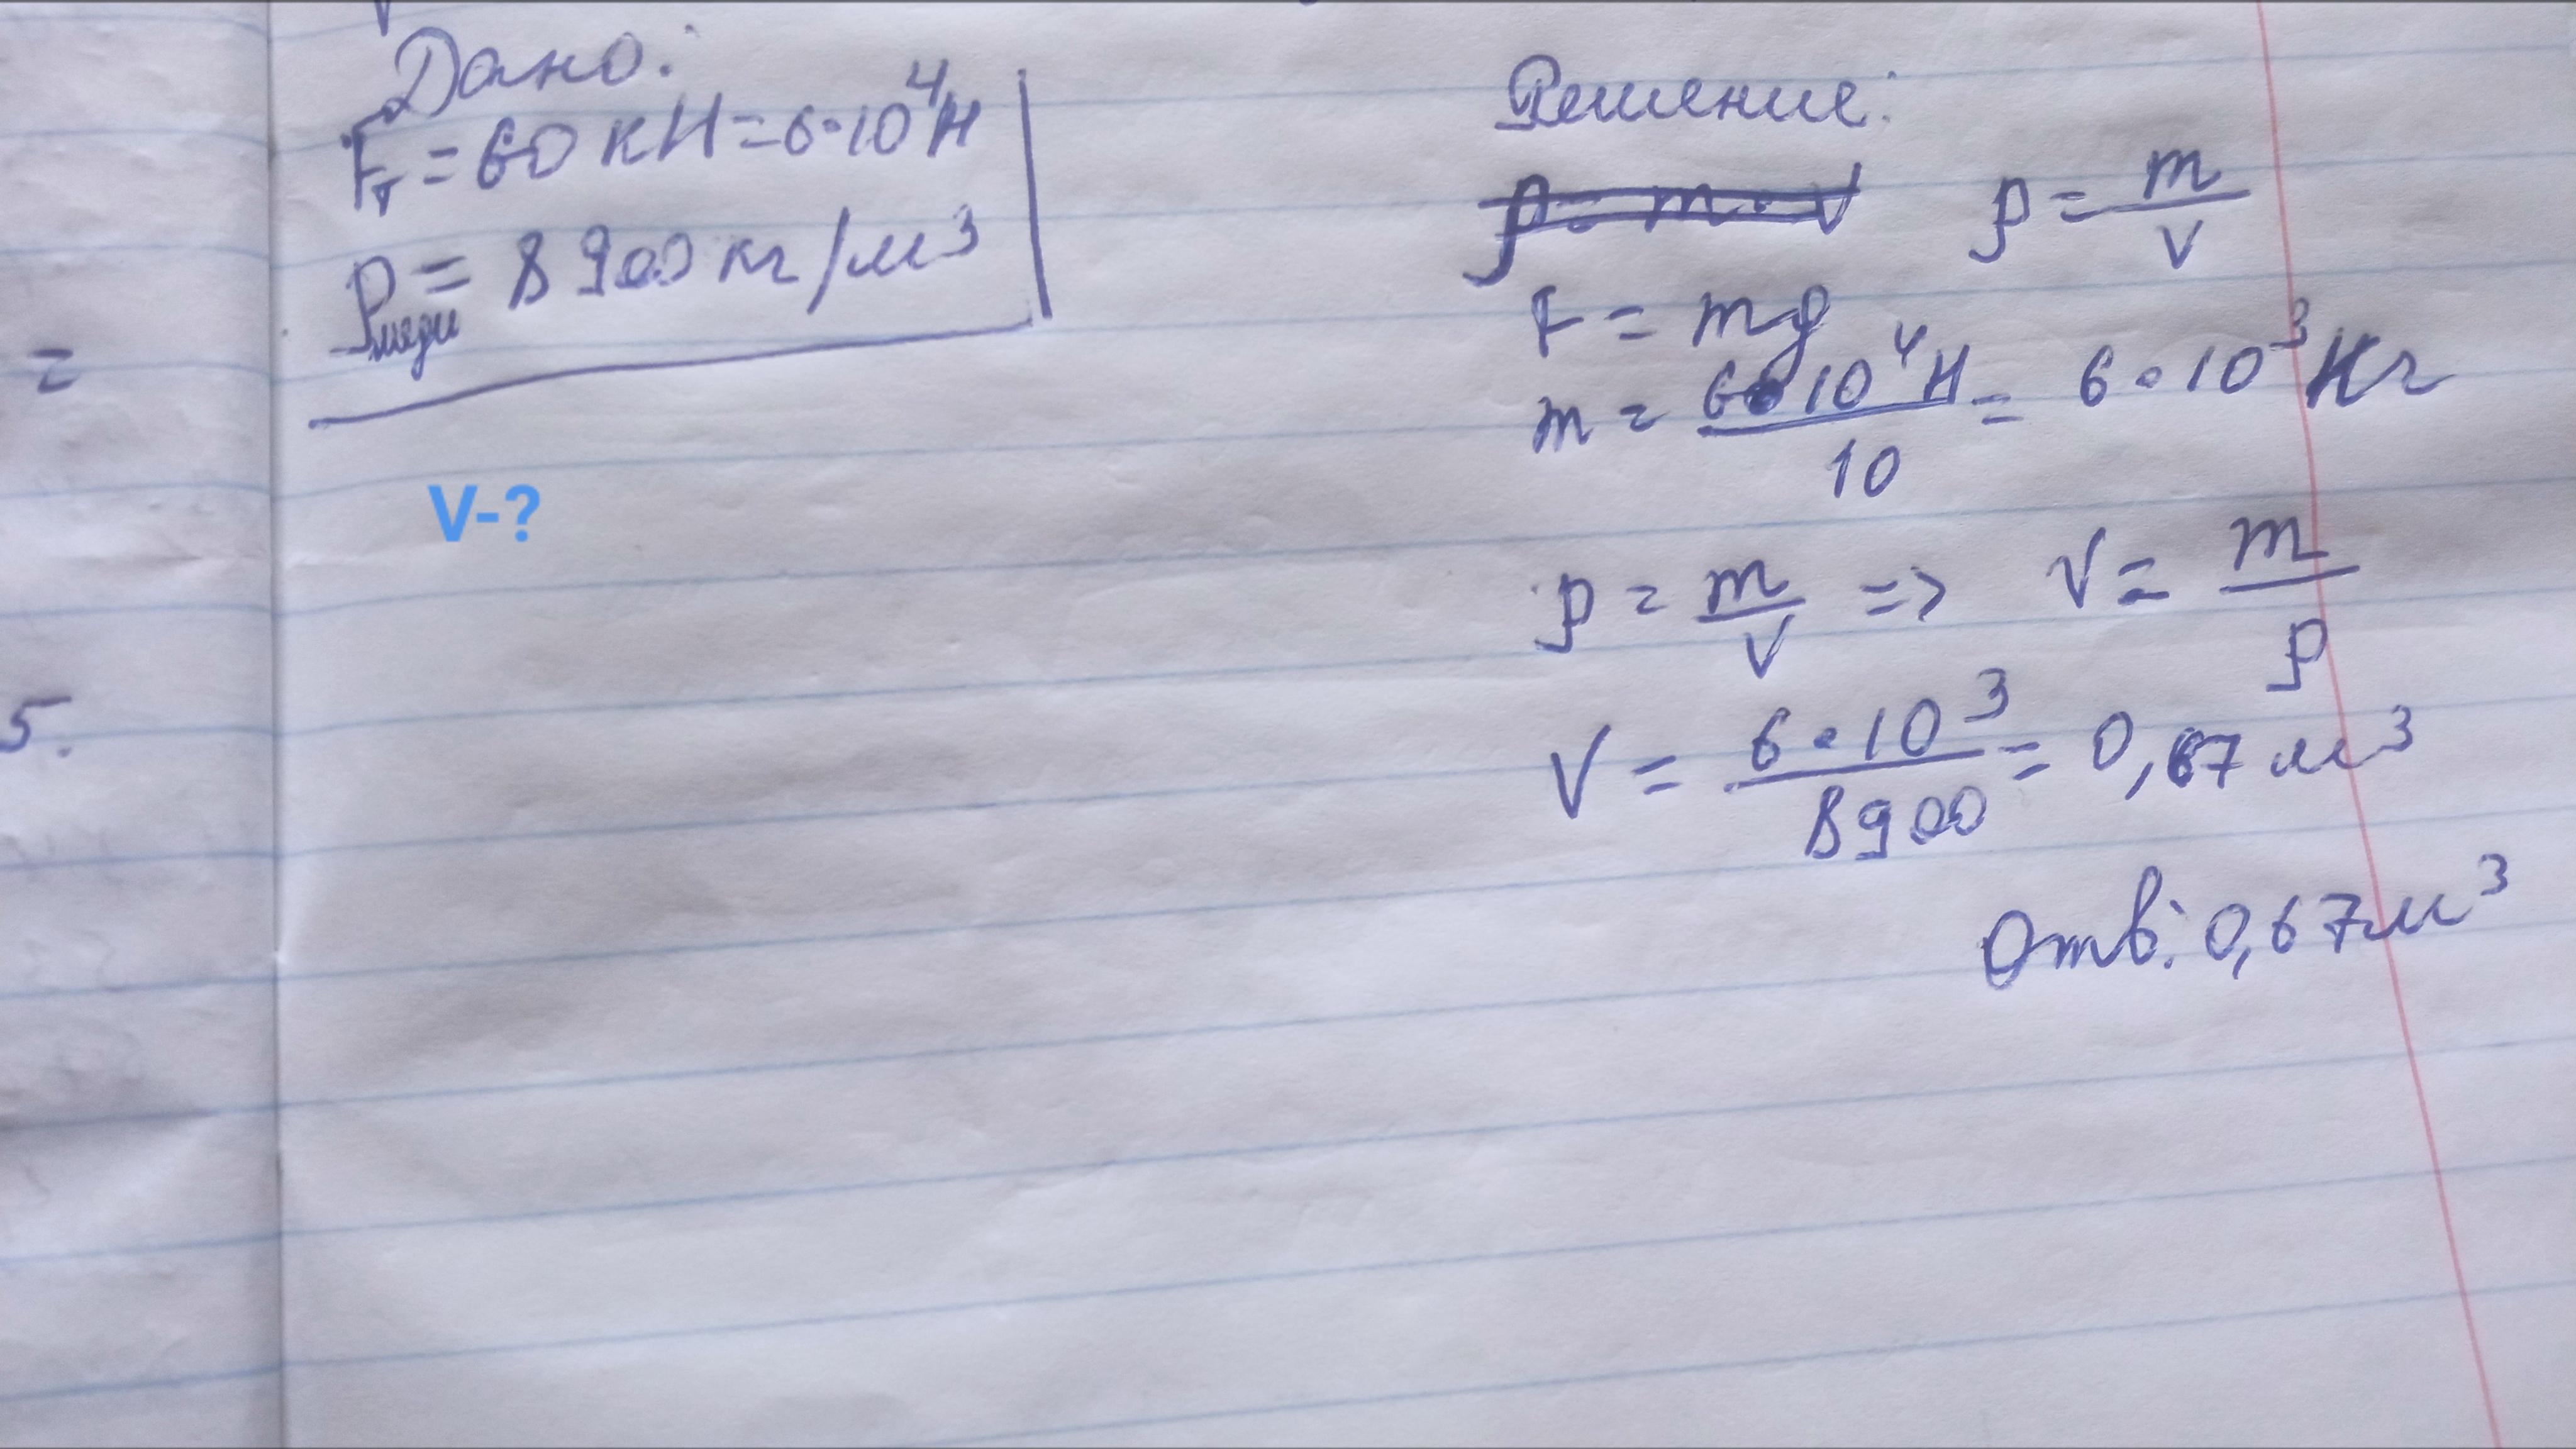 Дано:
Fт = 60 кН = 6·10⁴ Н
ρмеди = 8900 кг/м³
V-?
=
5.
Решение:
ρ = m·V ρ = m/V
F = mg
m = 6·10⁴Н/10 = 6·10³ Кг
ρ = m/V => V = m/ρ
V = 6·10³/8900 = 0,67 м³
Отв: 0,67 м³